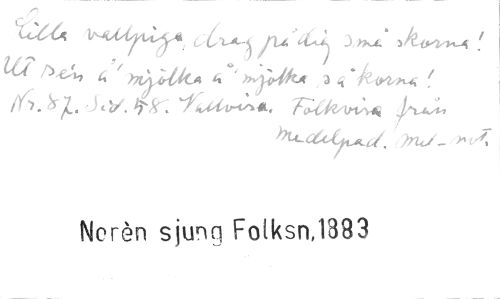 Lilla vallpiga, drag på dig små skorna!
Ut sén å' mjölka å' mjölka så korna!
Nr. 87. Sid. 58. Vallvisa. Folkvisa från
Medelpad. Mel-not.
Norèn sjung Folksn,1883